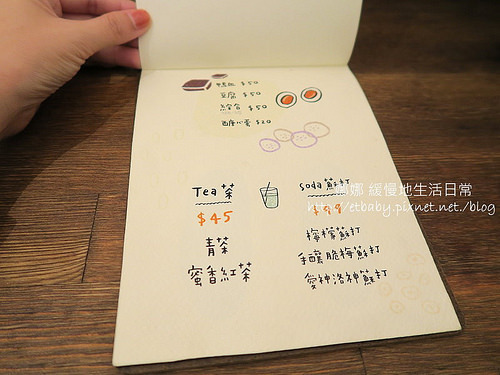 鴨血 $50
豆腐 $50
綜合 $50
酉唐心蛋 $20
Tea 茶
$45
青茶
蜜香紅茶
soda 蘇打
檸檬蘇打
手釀脆梅蘇打
愛神洛神蘇打
娜 緩慢地生活日常
http://etbaby.pixnet.net./blog